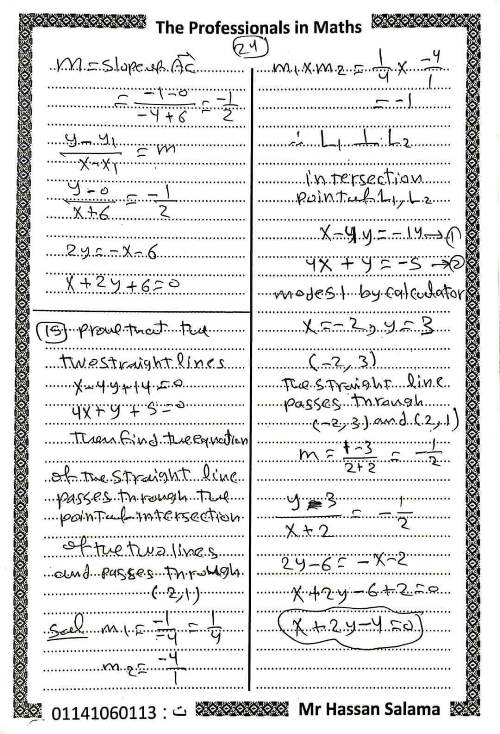 The Professionals in Maths
24
m = slope of AC
= -1-0 / -4+6 = -1/2
y-y1 / x-x1 = m
y-0 / x+6 = -1/2
2y = -x-6
x+2y+6=0
15 prove that the
two straight lines
x-4y+14=0
4x+y+5=0
then find the equation
of the straight line
passes through the
point of intersection
of the two lines
and passes through
(2,1)
Sol m1 = -1/-4 = 1/4
m2 = -4/1
m1 x m2 = 1/4 x -4/1
= -1
∴ L1 ⊥ L2
intersection
point of L1, L2
x-4y=-14 → 1
4x+y=-5 → 2
mode 5 1 by calculator
x=-2, y=3
(-2,3)
the straight line
passes through
(-2,3) and (2,1)
m = 1-3 / 2+2 = -1/2
y-3 / x+2 = -1/2
2y-6=-x-2
x+2y-6+2=0
x+2y-4=0
01141060113 : ت
Mr Hassan Salama